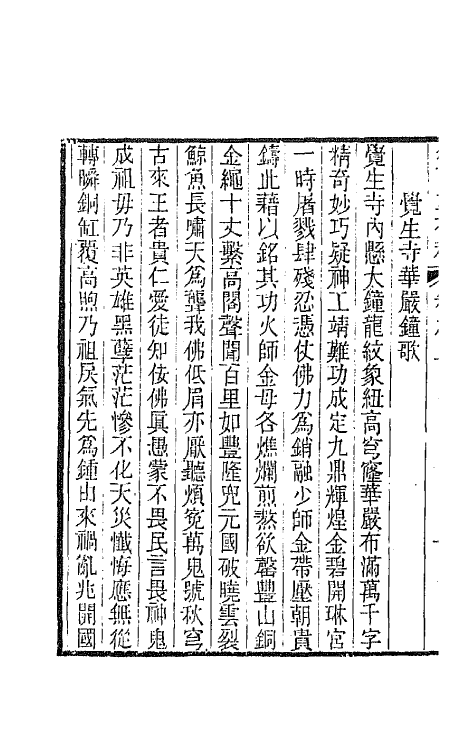 覺生寺華嚴鐘歌
覺生寺內懸大鐘龍紋象紐高穹窿華嚴布滿萬千字
精奇妙巧疑神工靖難功成定九鼎輝煌金碧開琳宮
一時屠戮肆殘忍憑仗佛力為銷融少師金帶壓朝貴
鑄此藉以銘其功火師金母各燋爛煎熬欲罄豐山銅
金繩十丈繫高閣聲聞百里如豐隆兜元國破曉雲裂
鯨魚長嘯天為聾我佛低眉亦厭聽煩冤萬鬼號秋穹
古來王者貴仁愛徒知佞佛真愚蒙不畏民言畏神鬼
成祖毋乃非英雄黑孽茫茫慘不化天災懺悔應無從
轉瞬銅缸覆高煦乃祖戾氣先為鍾由來禍亂兆開國